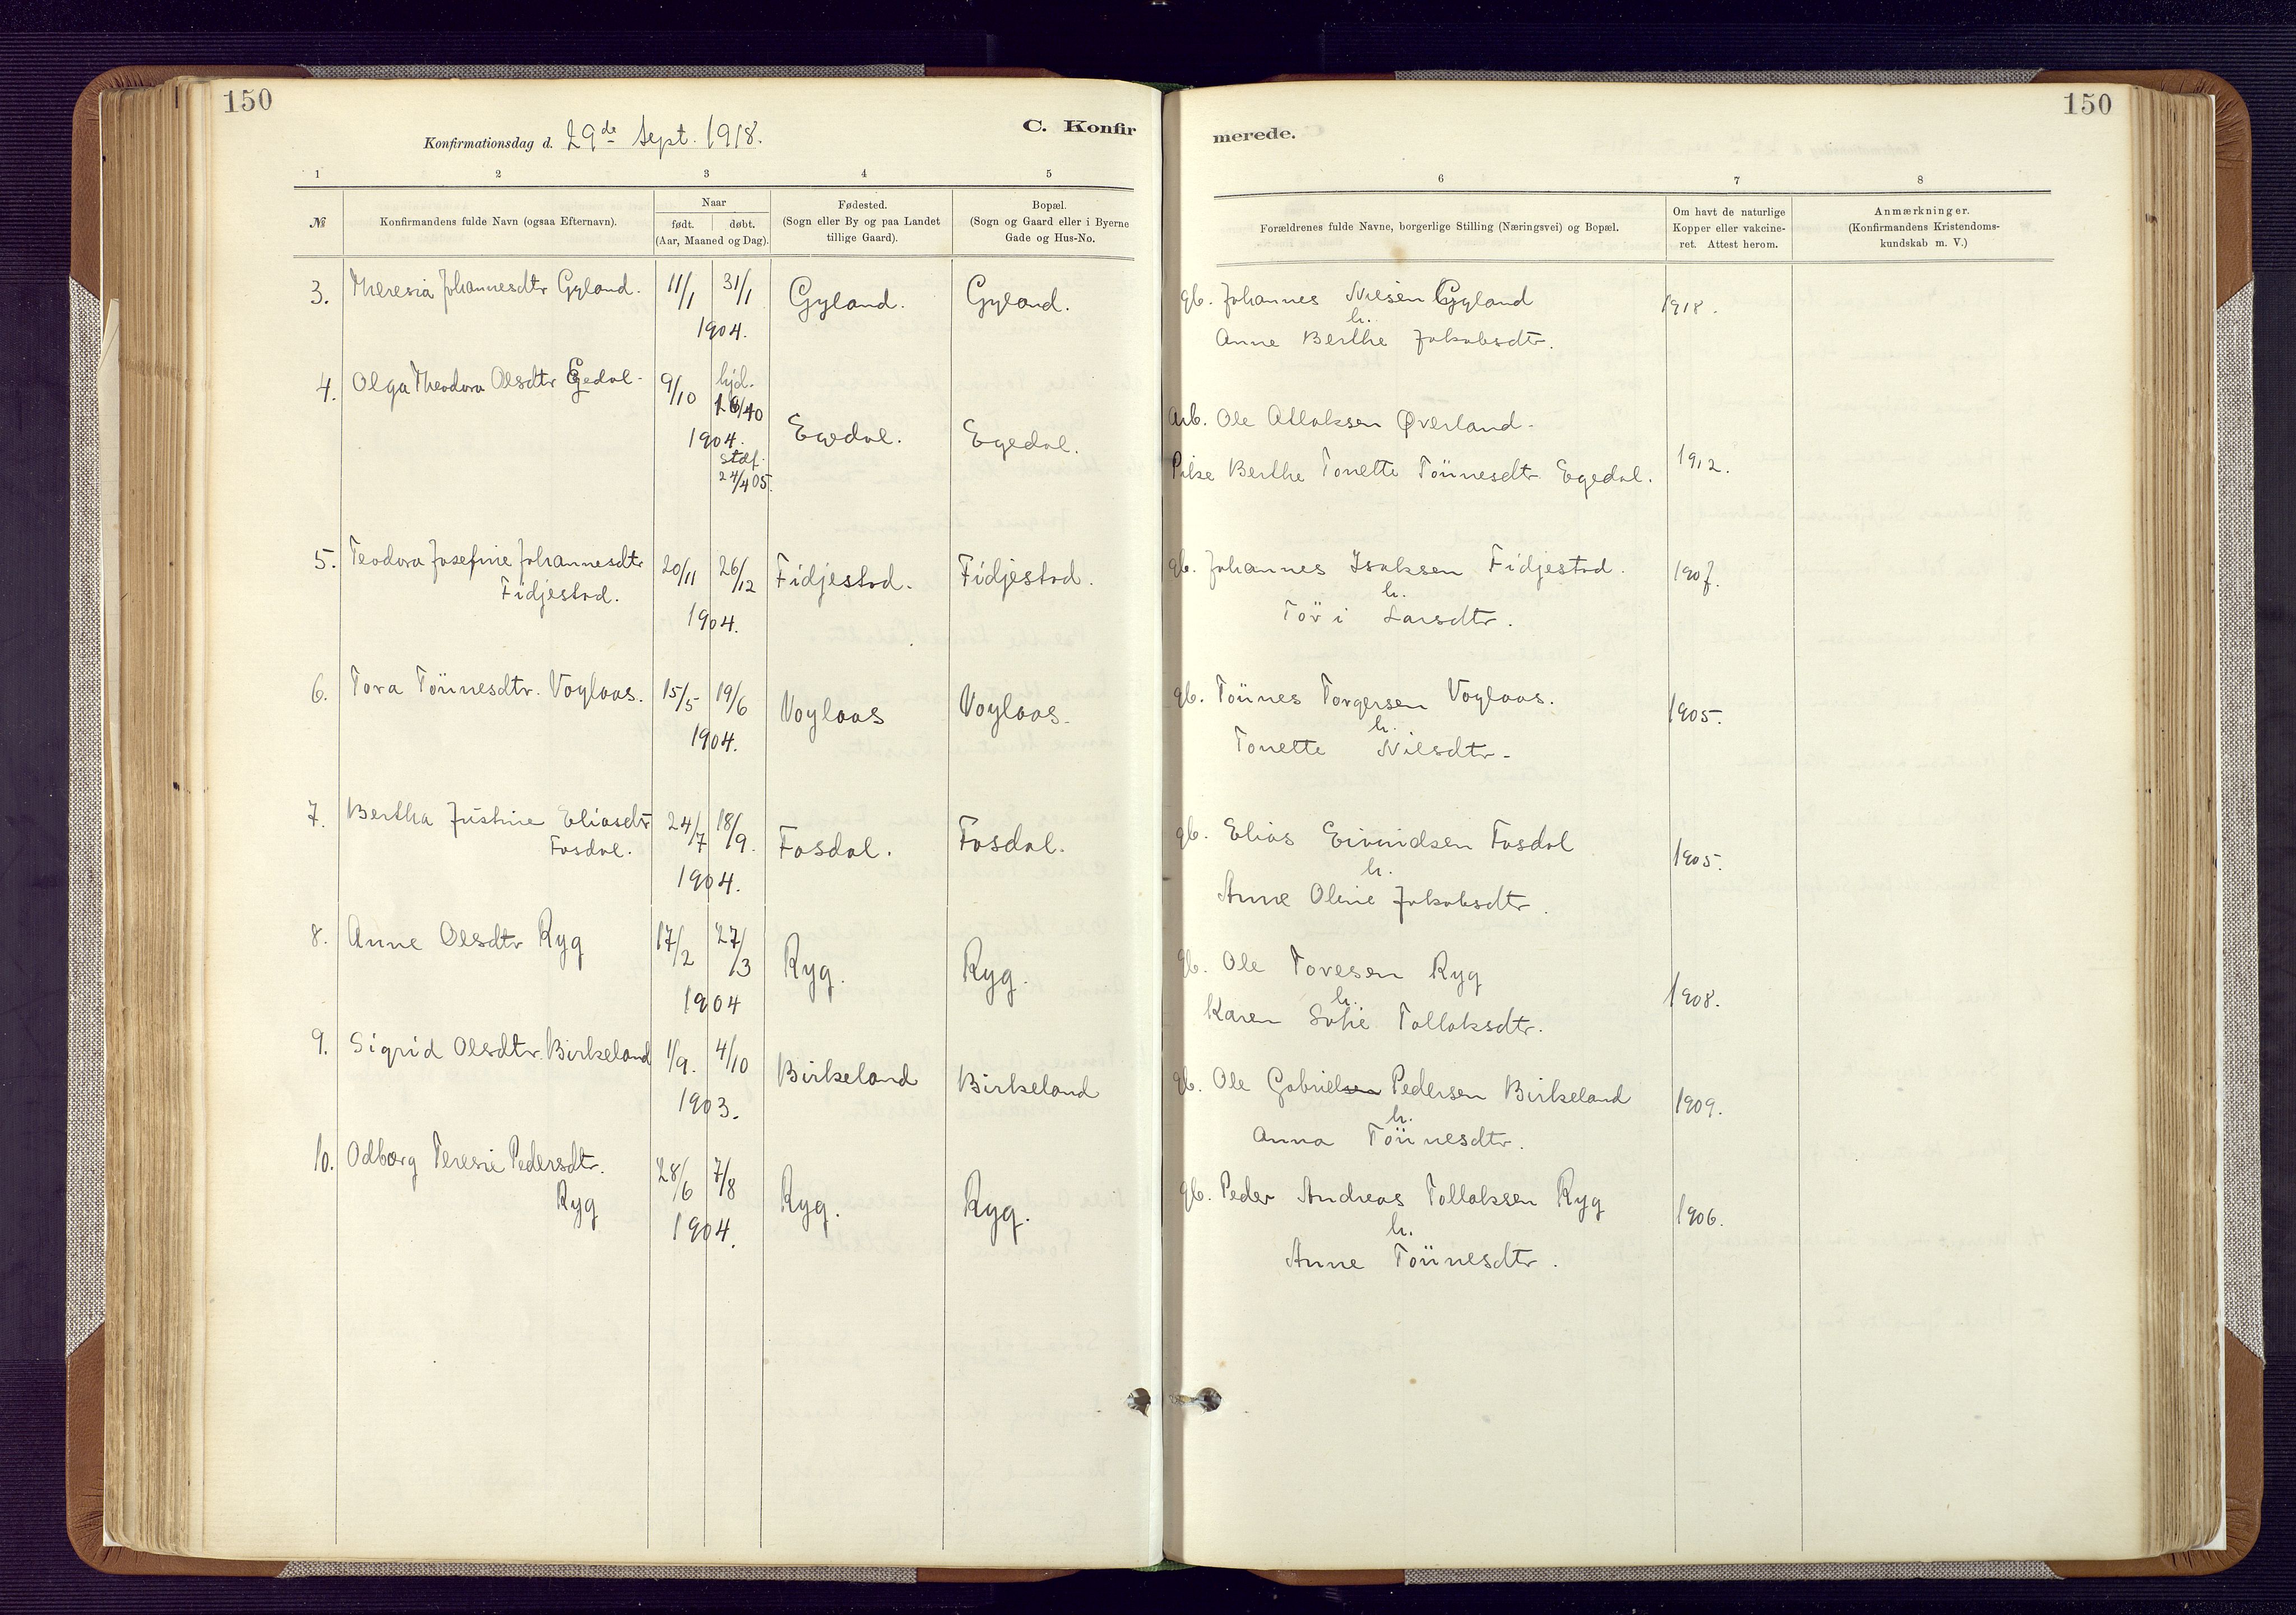 150
Konfirmationsdag d. 29de Sept. 1918.
C. Konfir
1 2 3 4 5
№ Konfirmandens fulde Navn (ogsaa Efternavn).
Naar
født. døbt.
(Aar, Maaned og Dag).
Fødested.
(Sogn eller By og paa Landet
tillige Gaard).
Bopæl.
(Sogn og Gaard eller i Byerne
Gade og Hus-No.
3. Theresia Johannesdtr Gyland. 11/1 31/1 Gyland. Gyland.
1904.
4. Olga Theodora Olsdtr Egedal- 9/10 hjd.
/10
1904. Egedal. Egedal.
stdf.
24/4 05.
5. Teodora Josefine Johannesdtr 20/11 26/12 Fidjestad. Fidjestad.
Fidjestad.
1904.
6. Tora Tönnesdtr. Voglaas. 15/5- 19/6 Voglaas Voglaas.
1904.
7. Bertha Justine Eliasdtr 24/7 18/9. Fosdal. Fosdal.
Fosdal.
1904.
8. Anne Olsdtr Ryg 17/2 27/3 Ryg. Ryg.
1904
9. Sigrid Olsdtr. Birkeland 1/9. 4/10 Birkeland Birkeland
1903.
10. Odborg Teresie Pedersdtr. 28/6 7/8 Ryg. Ryg.
Ryg
1904.
150
merede.
6 7 8
Forældrenes fulde Navne, borgerlige Stilling (Næringsvei) og Bopæl.
Om havt de naturlige
Kopper eller vakcine-
ret. Attest herom.
Anmærkninger.
(Konfirmandens Kristendoms-
kundskab m. V.)
gb. Johannes Nilsen Gyland 1918.
h.
Anne Berthe Jakobsdtr.
Arb. Ole Atlaksen Øverland-
Pike Berthe Tonette Tönnesdtr Egedal. 1912.
gb. Johannes Isaksen Fidjestad. 1907.
h.
Tori Larsdtr.
gb. Tönnes Torgersen Voglaas. 1905.
h.
Tonette Nilsdtr-
gb. Elias Eivindsen Fosdal 1905.
h.
Anne Oline Jakobsdtr.
gb. Ole Tovesen Ryg 1908.
h.
Karen Sofie Tollaksdtr.
gb. Ole Gabrielsen Pedersen Birkeland 1909.
h.
Anna Tönnesdtr.
gb. Peder Andreas Tollaksen Ryg 1906.
h.
Anne Tönnesdtr.